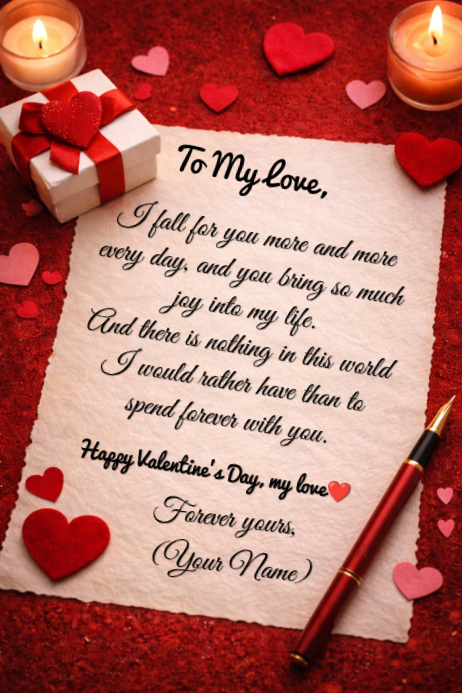 To My Love,
I fall for you more and more
every day, and you bring so much
joy into my life.
And there is nothing in this world
I would rather have than to
spend forever with you.
Happy Valentine's Day, my love❤️
Forever yours,
(Your Name)